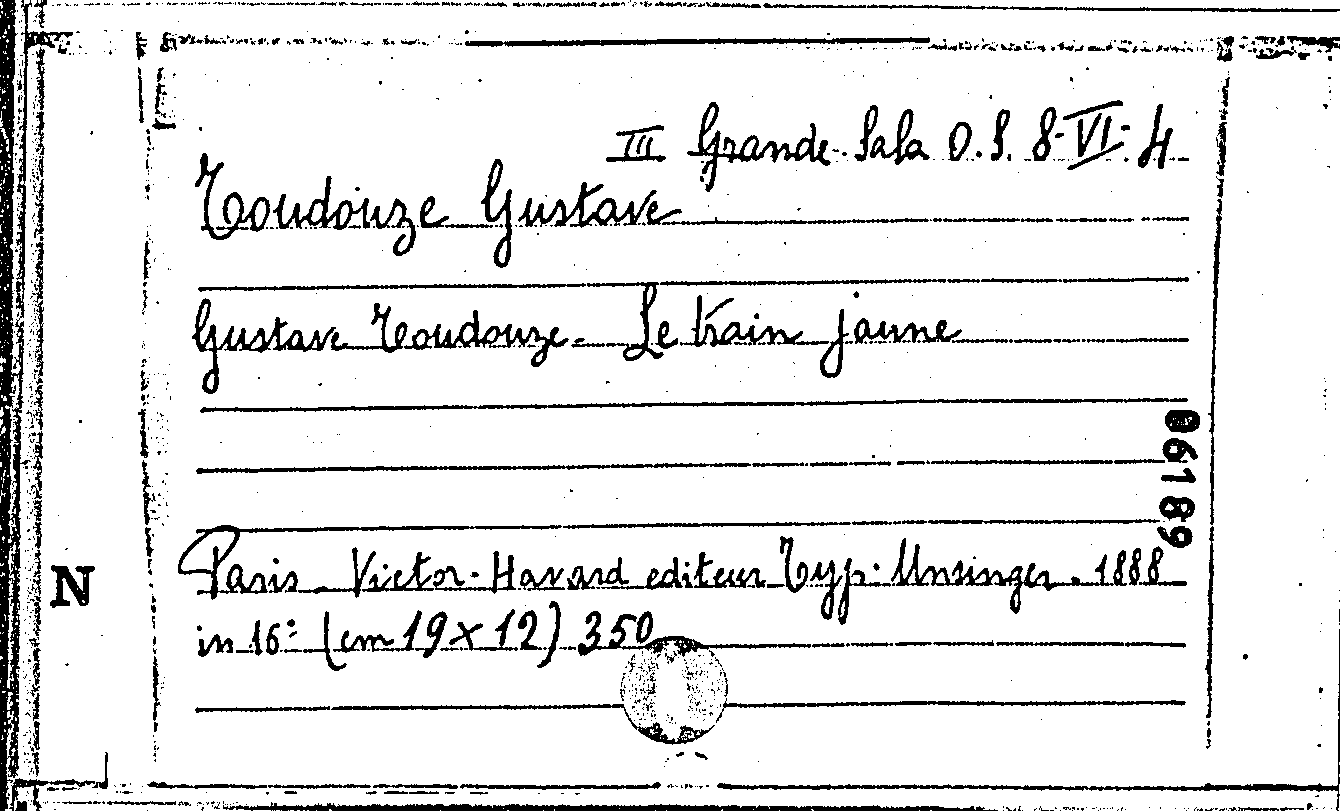 III Grande Sala O.S. 8-VI-4
Toudouze Gustave
Gustave Toudouze. Le train jaune
06189
Paris - Victor-Havard editeur Typ. Unsinger. 1888
N
in 16° (cm 19 x 12) 350